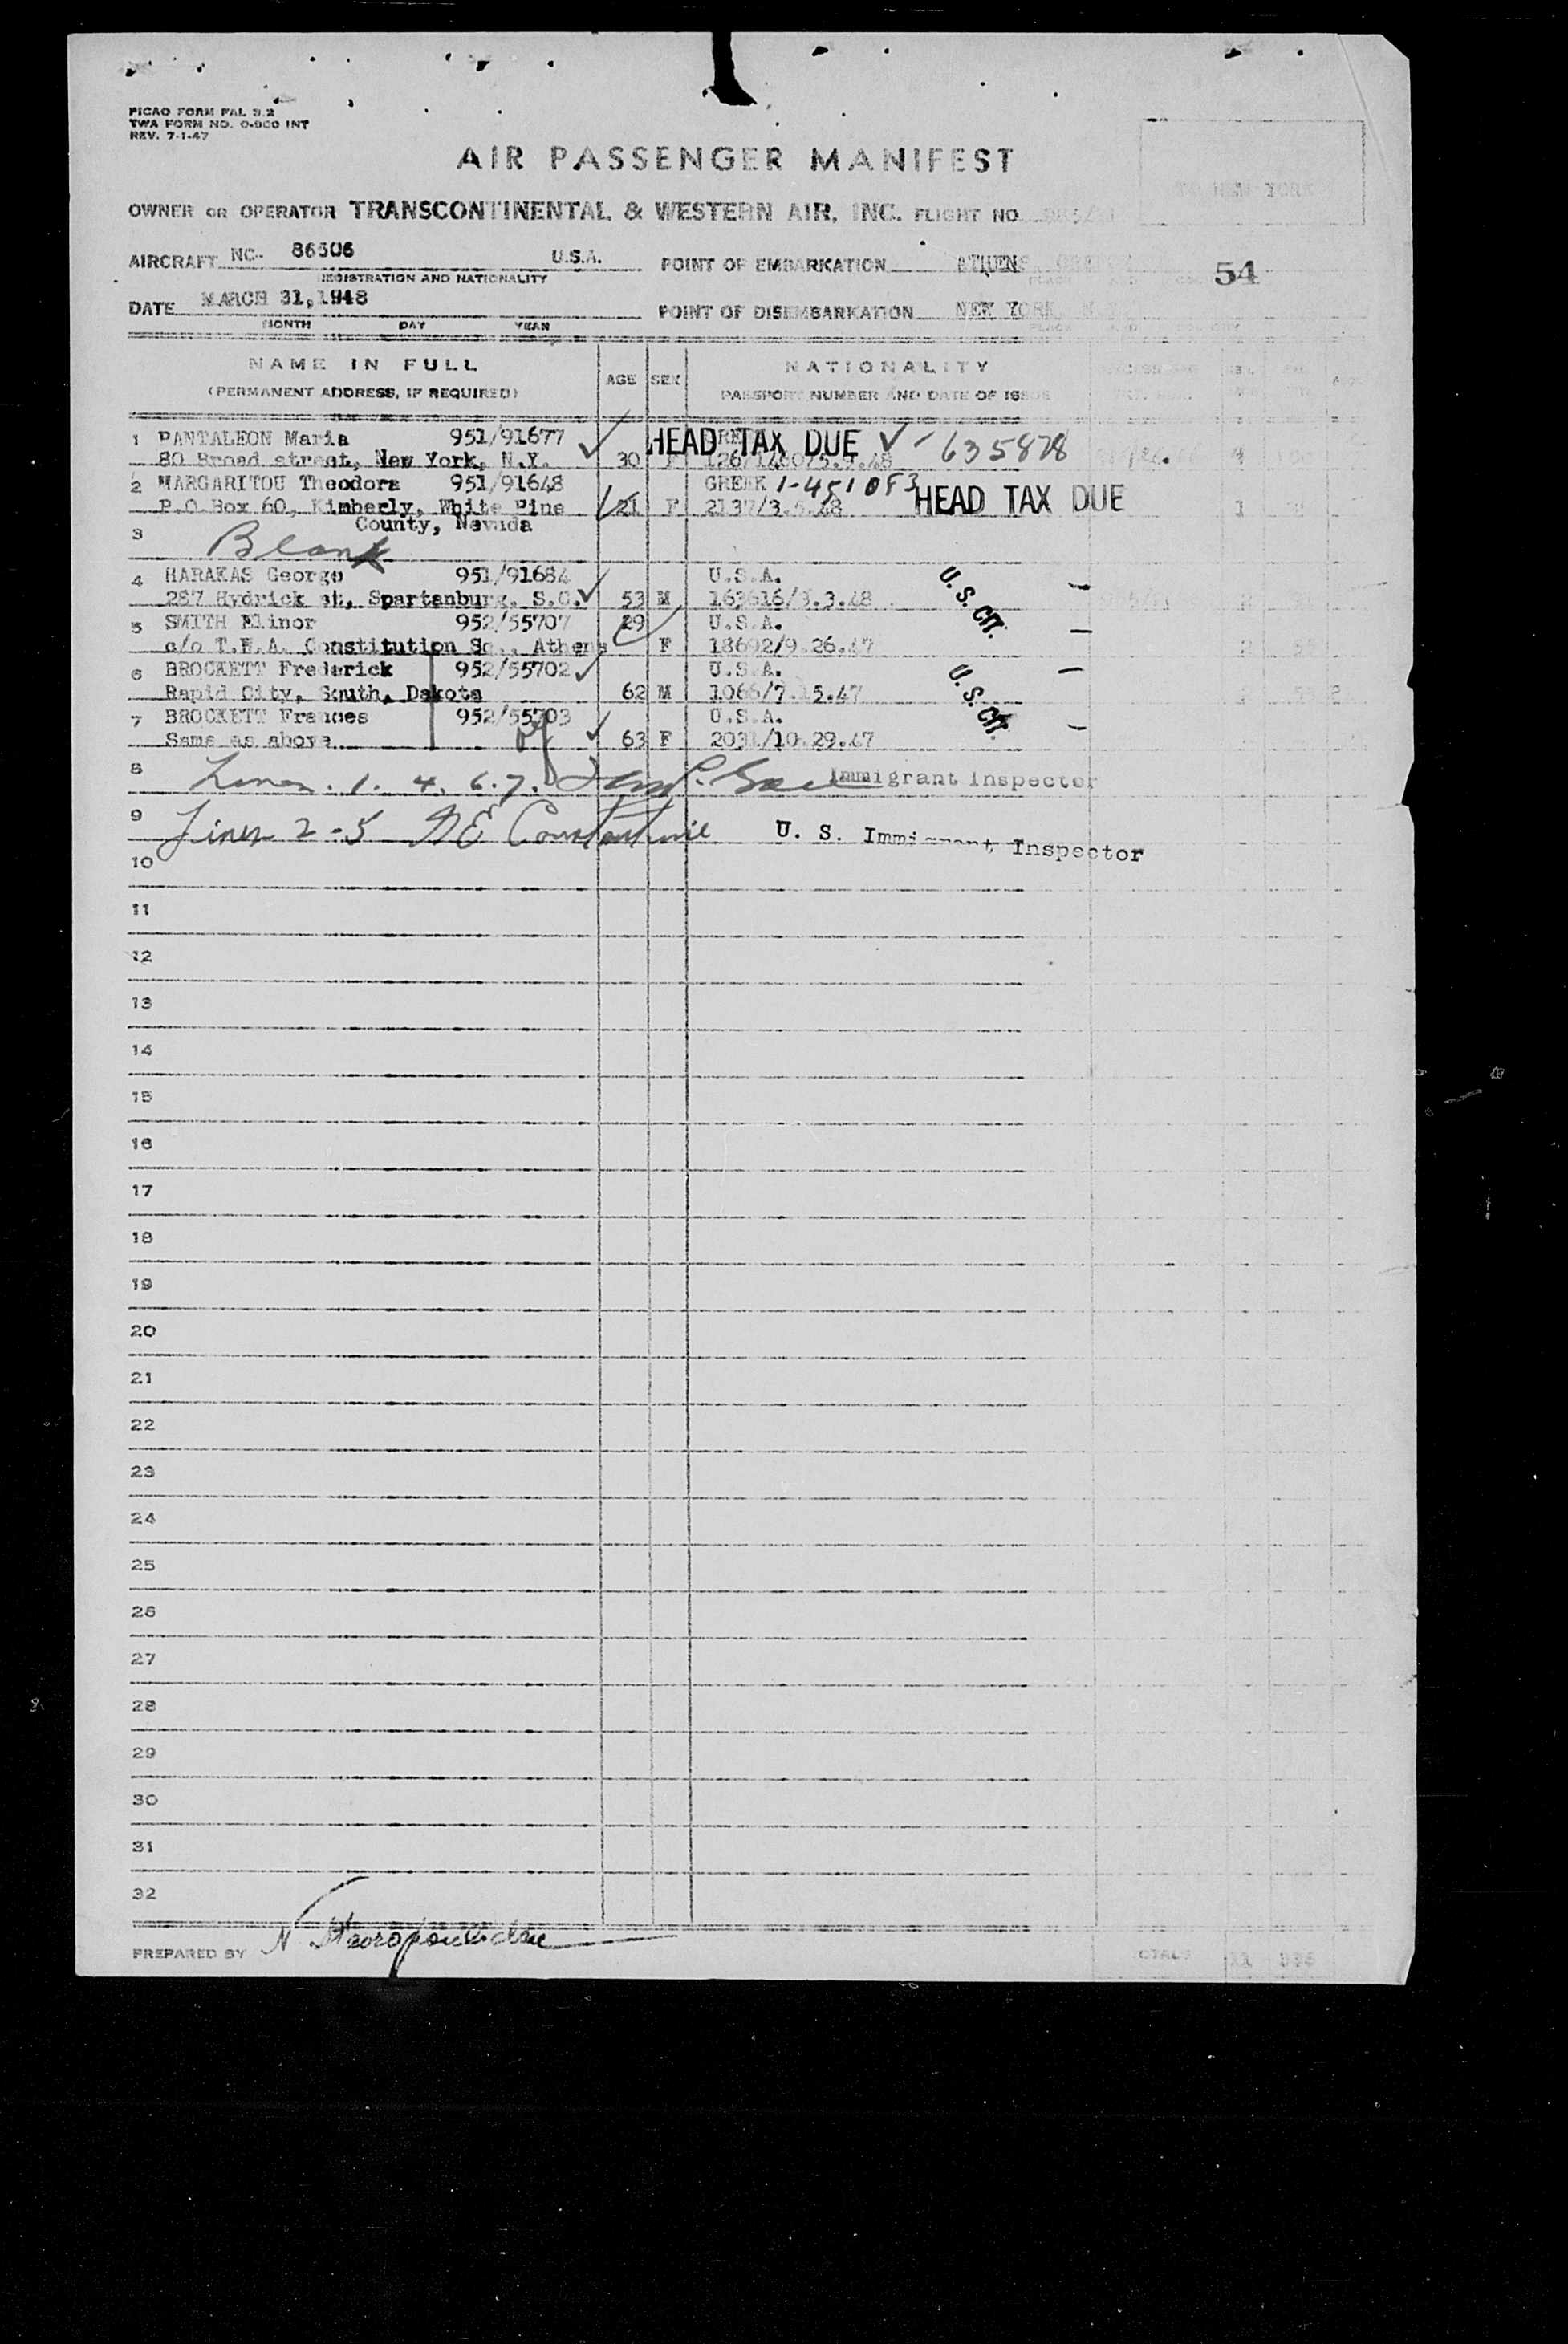 PICAO FORM FAL 3.2
TWA FORM NO. O-900 INT
REV. 7-1-47
AIR PASSENGER MANIFEST
TO NEW YORK
OWNER OR OPERATOR TRANSCONTINENTAL & WESTERN AIR, INC. FLIGHT NO.
AIRCRAFT NC- 86506 U.S.A. POINT OF EMBARKATION ATHENS, 54
REGISTRATION AND NATIONALITY
DATE MARCH 31, 1948 POINT OF DISEMBARKATION NEW YORK,
MONTH DAY YEAR
NAME IN FULL AGE SEX NATIONALITY
(PERMANENT ADDRESS, IF REQUIRED) PASSPORT NUMBER AND DATE OF ISSUE
1 PANTALEON Maria 951/91677 HEAD TAX DUE 635878
80 Broad street, New York, N.Y. 30 F
2 MARGARITOU Theodora 951/91648 GREEK 1-451083 HEAD TAX DUE
P.O.Box 60, Kimberly, White Pine 21 F 2137/3.5.48 1
County, Nevada
3 Blank
4 HARAKAS George 951/91684 U.S.A. U. S. CIT.
287 Hydrick st, Spartanburg, S.C. 53 M 163616/3.3.48
5 SMITH Elinor 952/55707 29 U.S.A.
c/o T.W.A. Constitution Sq., Athens F 18692/9.26.47
6 BROCKETT Frederick 952/55702 U.S.A. U. S. CIT.
Rapid City, South, Dakota 62 M 1066/7.15.47
7 BROCKETT Frances 952/55703 U.S.A.
Same as above 63 F 2031/10.29.47
8 Lines. 1. 4. 6. 7. Immigrant Inspector
9 Lines 2-5 Constantine U. S. Immigrant Inspector
10
11
12
13
14
15
16
17
18
19
20
21
22
23
24
25
26
27
28
29
30
31
32
PREPARED BY TOTALS 11